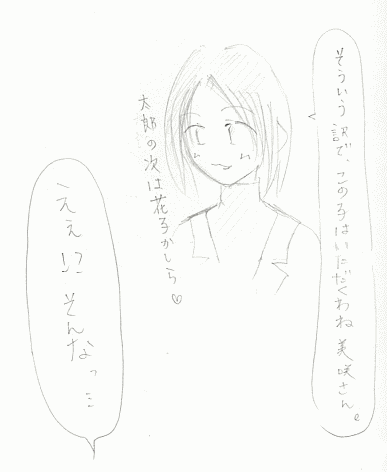 そういう訳で、この子はいただくわね美咲さん。
太郎の次は花子かしら♡
ええ!?そんなっ…